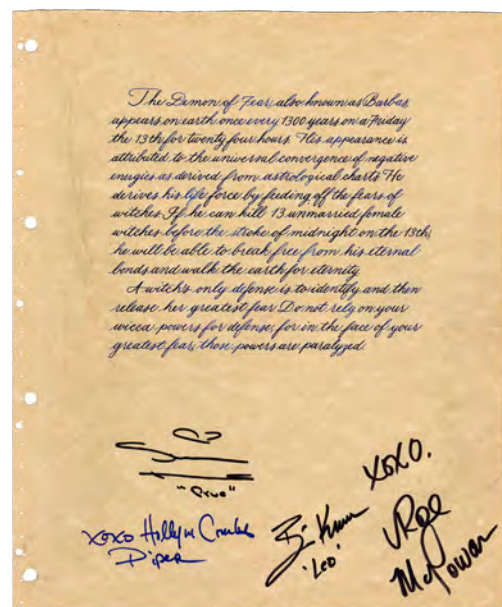 The Demon of Fear, also known as Barbas,
appears on earth once every 1300 years on a Friday
the 13th for twenty four hours. His appearance is
attributed to the universal convergence of negative
energies as derived from astrological charts. He
derives his life force by feeding off the fears of
witches. If he can kill 13 unmarried female
witches before the stroke of midnight on the 13th,
he will be able to break free from his eternal
bonds and walk the earth for eternity.
A witch's only defense is to identify and then
release her greatest fear. Do not rely on your
wicca powers for defense, for in the face of your
greatest fear, those powers are paralyzed.
XOXO.
"Prue"
XOXO Holly M Combs
Piper
'Leo'
Rose
McGowan